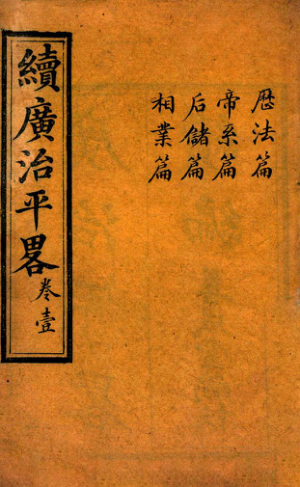 歷法篇
帝系篇
后儲篇
相業篇
續廣治平畧
卷壹